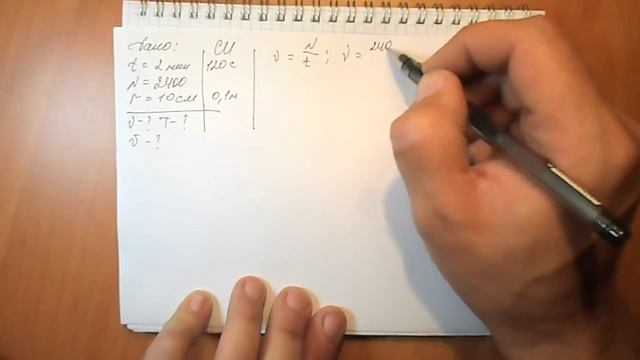 Дано: СИ
t = 2 мин 120 с
N = 2400
r = 10 см 0,1 м
ν - ? T - ?
v - ?
ν = N/t ; ν = 240